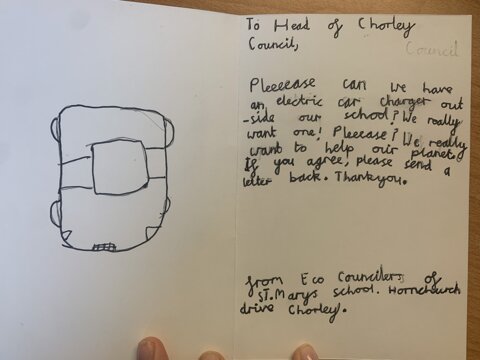 To Head of Chorley
Council,
Council
Pleeeease can we have
an electric car charger out
-side our school? We really
want one! Pleecase? We really
want to help our planet.
If you agree, please send a
letter back. Thankyou.
from Eco Councilers of
ST.Marys school. Hornchurch
drive Chorley.